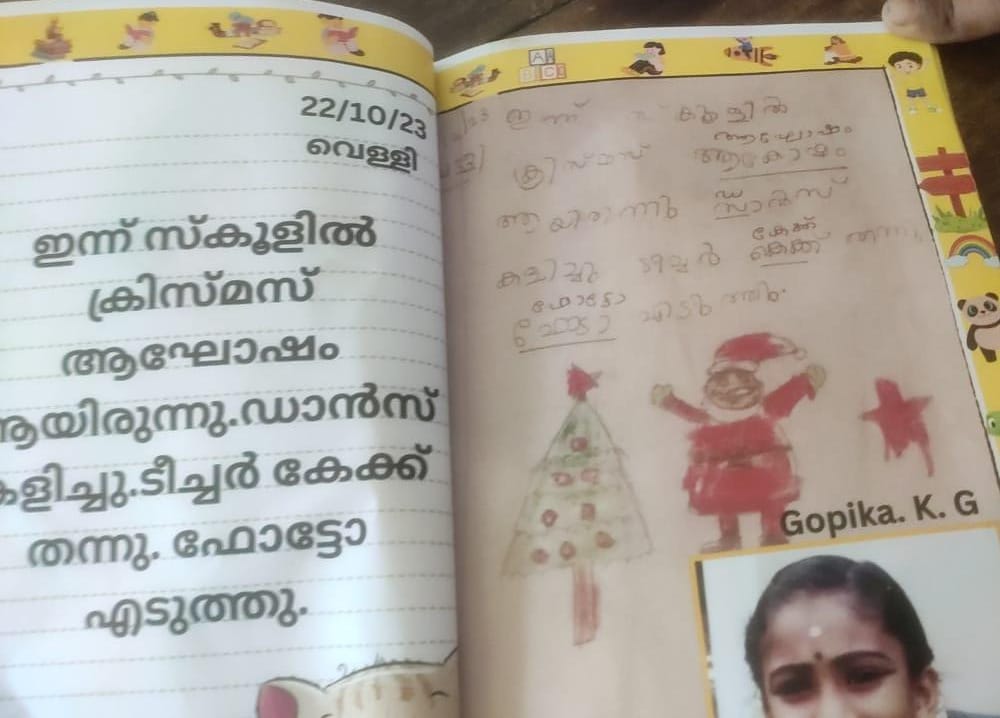 22/10/23
വെള്ളി
ഇന്ന് സ്കൂളിൽ
ക്രിസ്മസ്
ആഘോഷം
ആയിരുന്നു.ഡാൻസ്
കളിച്ചു.ടീച്ചർ കേക്ക്
തന്നു. ഫോട്ടോ
എടുത്തു.
ABC
ഇന്ന്
ആഘോഷം
ക്രിസ്മസ്
ആയിരുന്നു
കേക്ക്
കളിച്ചു ടീച്ചർ കെക്ക് തന്നു
ഫോട്ടോ
Gopika. K. G